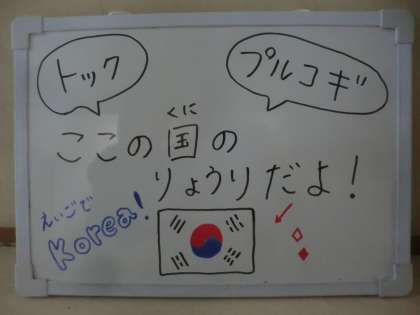 トック
プルコギ
くに
ここの国の
りょうりだよ！
えいごで
Korea!